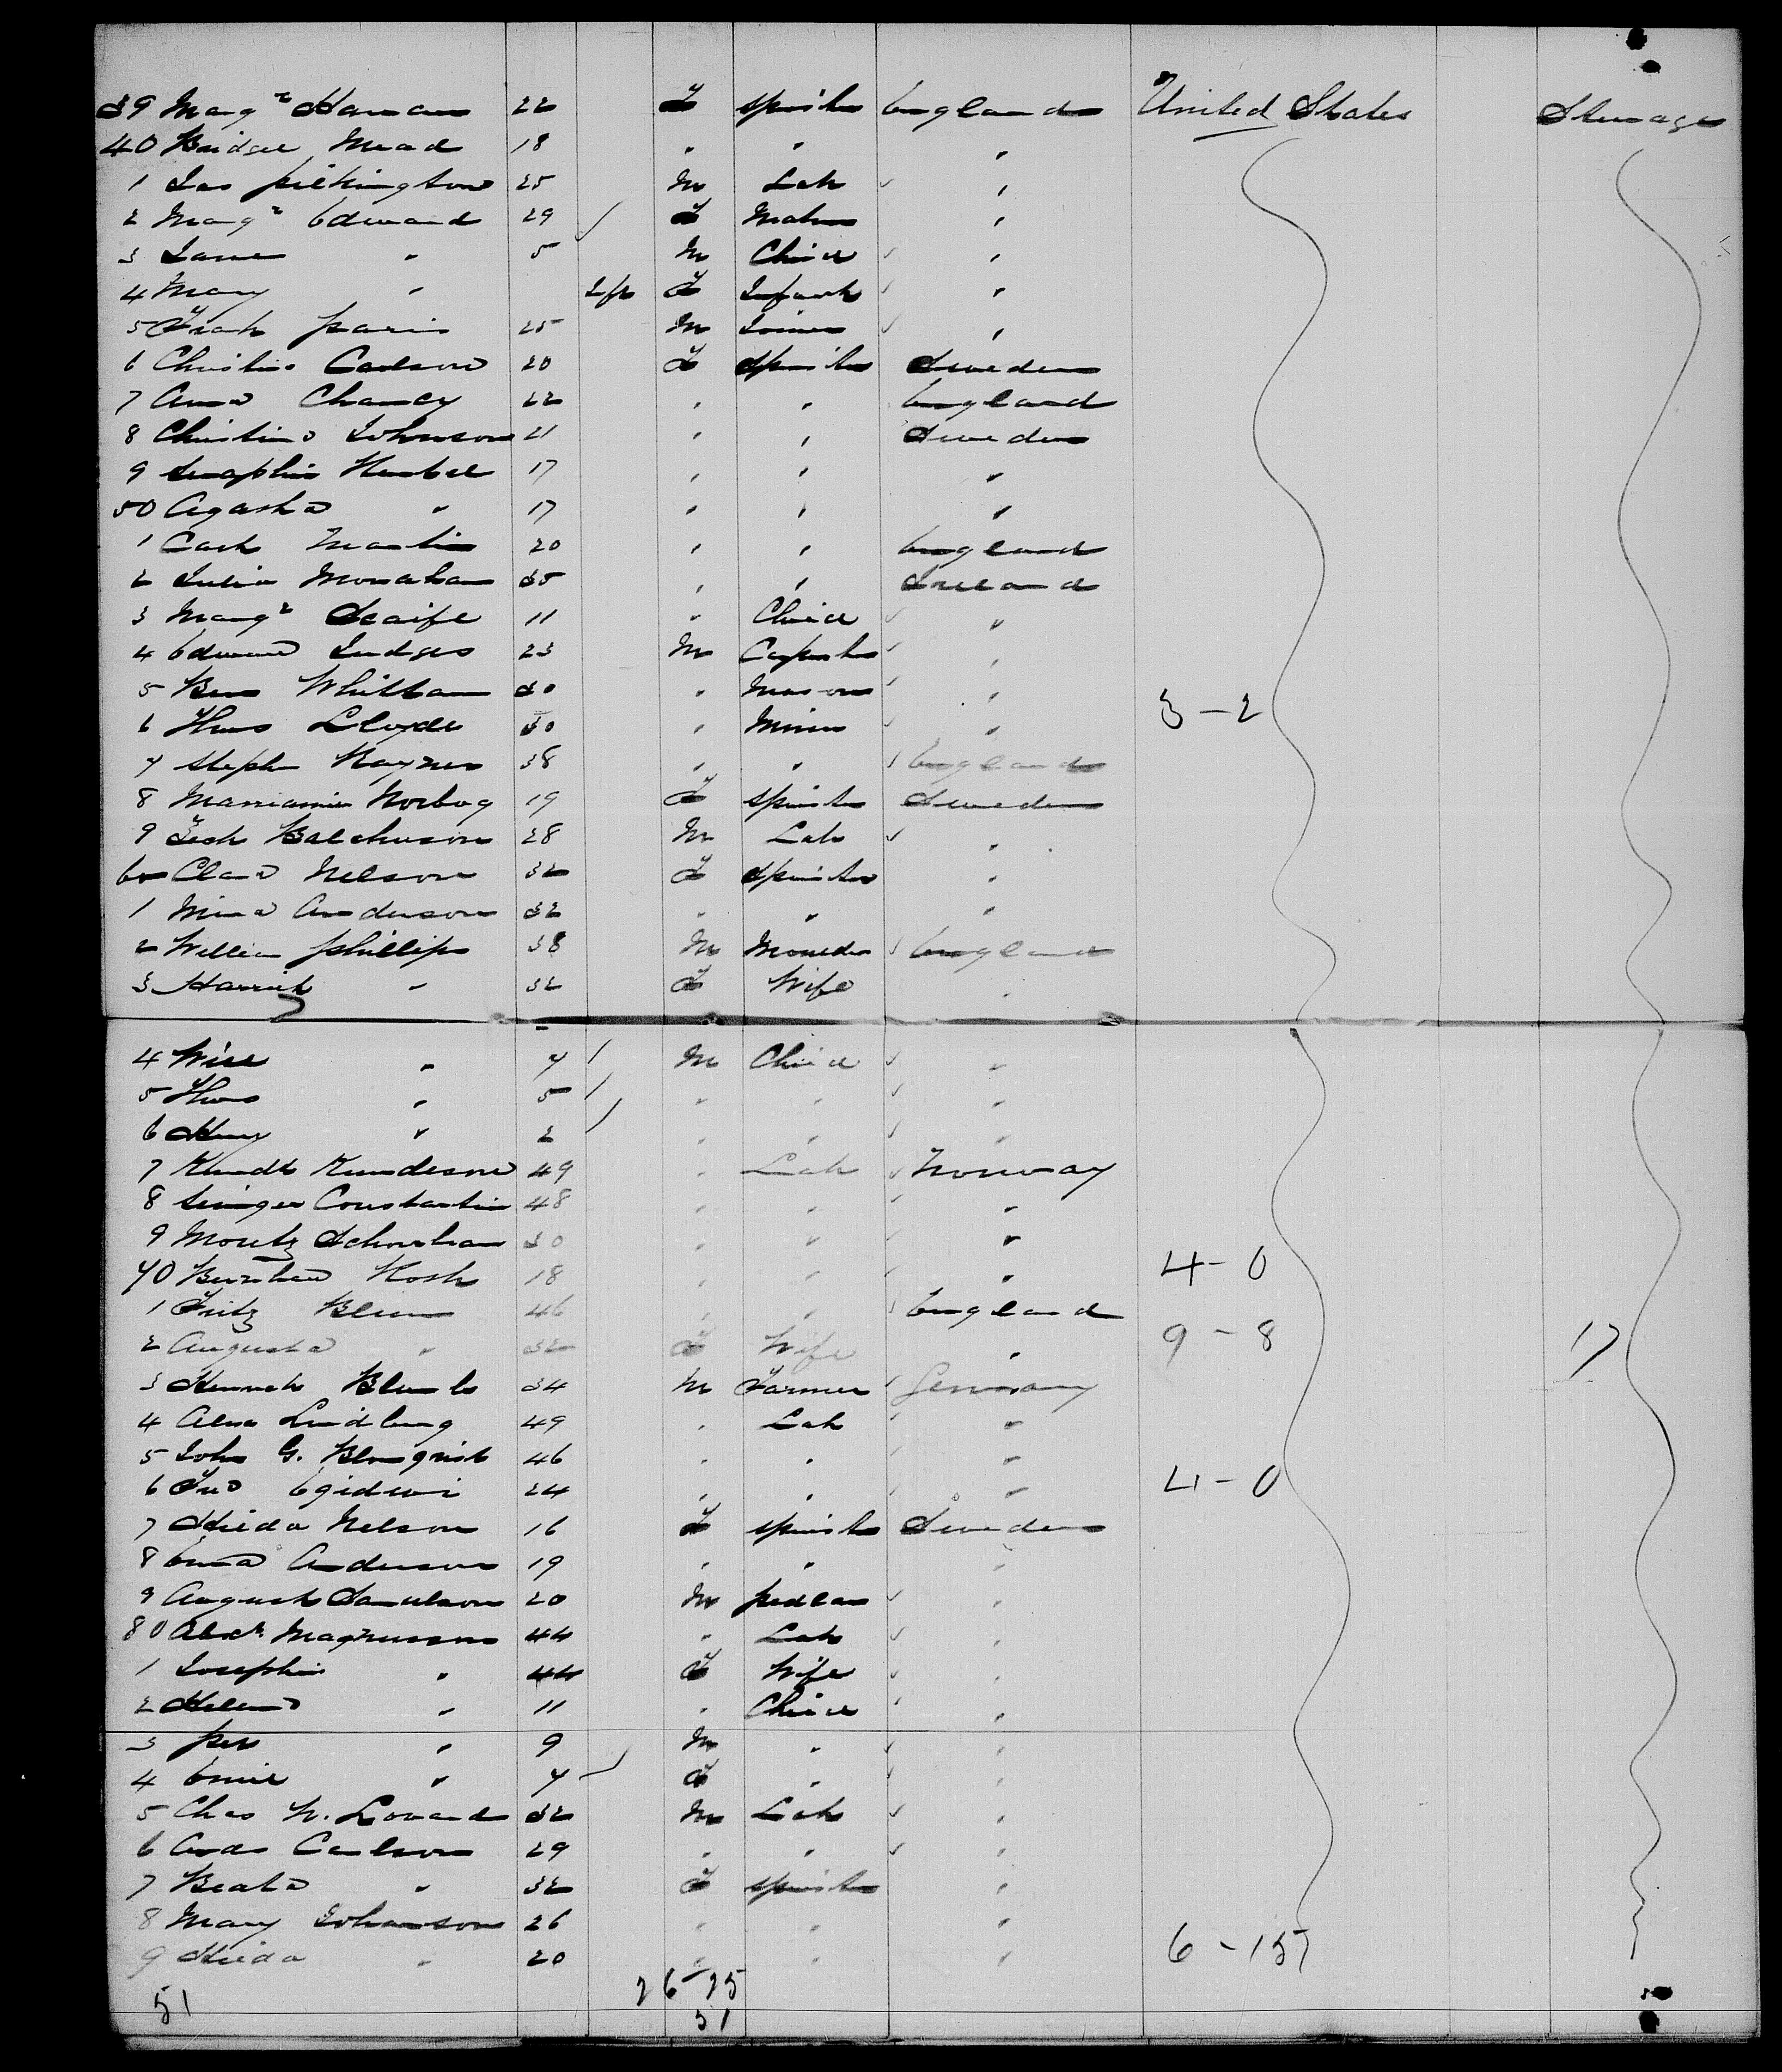 39 Marg't Hanan 22 F Spinster England United States Steerage
40 Bridget Mead 18 " " "
1 Jas Pilkington 25 M Lab "
2 Marg't Edward 29 F Matron "
3 Jane " 5 M Child "
4 Mary " Inft F Infant "
5 Frank Paris 25 M Joiner "
6 Christina Carlson 20 F Spinster Sweden
7 Anna Chancy 22 " " England
8 Christina Johnson 21 " " Sweden
9 Seraphin 17 " " "
50 Agasha " 17 " " "
1 Cath Martin 20 " " England
2 Julia Monahan 35 " " Ireland
3 Marg't Scaife 11 " Child "
4 Edward Judges 23 M "
5 Ben Whittam 30 " Mason " 3-2
6 Thos Lloyde 30 " Miner "
7 Steph Rayner 38 " " England
8 Norbog 19 F Spinster Sweden
9 28 M Lab "
60 Clara Nelson 32 F Spinster "
1 Mina Anderson 32 " " "
2 William Phillips 38 M Moulder England
3 Harriet " 32 F Wife "
4 Will " 7 M Child "
5 Thos " 5 " " "
6 Henry " 2 " " "
7 Knudt Kundeson 49 " Lab Norway
8 Constantin 48 " " "
9 Moritz 30 " " "
70 Kosh 18 " " " 4-0
1 Fritz Blum 46 " " England
2 Augusta " 32 F Wife " 9-8 17
3 34 M Farmer Germany
4 Lindberg 49 " Lab "
5 John G. Blomquist 46 " " "
6 24 " " " 4-0
7 Hilda Nelson 16 F Spinster Sweden
8 Emma Anderson 19 " " "
9 August Samuelson 20 M Pedlar "
80 Alex'r Magnusson 44 " Lab "
1 Josephin " 44 F Wife "
2 Helena " 11 " Child "
3 Per " 9 M " "
4 Emil " 7 F " "
5 Chas W. Lovand 32 M Lab "
6 Ands Carlson 29 " " "
7 Beata " 32 F Spinster "
8 Mary Johanson 26 " " "
9 Hilda " 20 " " " 6-15
51 26-25
51